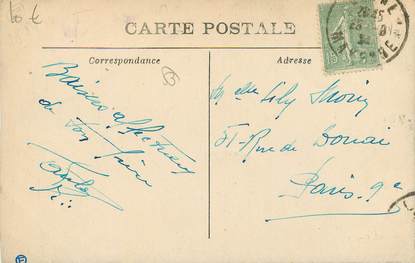 10 €
CARTE POSTALE
Correspondance
Adresse
Baisers affectueux
de ton frère
Mlle Lily
51 Rue de Douai
Paris. 9e
15